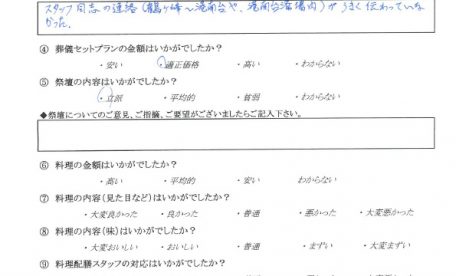 スタッフ同志の連絡(鶴ヶ峰〜港南台や、港南台斎場内)がうまく伝わっていな
かった。
④ 葬儀セットプランの金額はいかがでしたか?
・安い ・適正価格 ・高い ・わからない
⑤ 祭壇の内容はいかがでしたか?
・立派 ・平均的 ・貧弱 ・わからない
◆祭壇についてのご意見、ご指摘、ご要望がございましたらご記入下さい。
⑥ 料理の金額はいかがでしたか?
・高い ・平均的 ・安い わからない
⑦ 料理の内容(見た目など)はいかがでしたか?
・大変良かった ・良かった ・普通 ・悪かった ・大変悪かった
⑧ 料理の内容(味)はいかがでしたか?
・大変おいしい ・おいしい ・普通 ・まずい ・大変まずい
⑨ 料理配膳スタッフの対応はいかがでしたか?